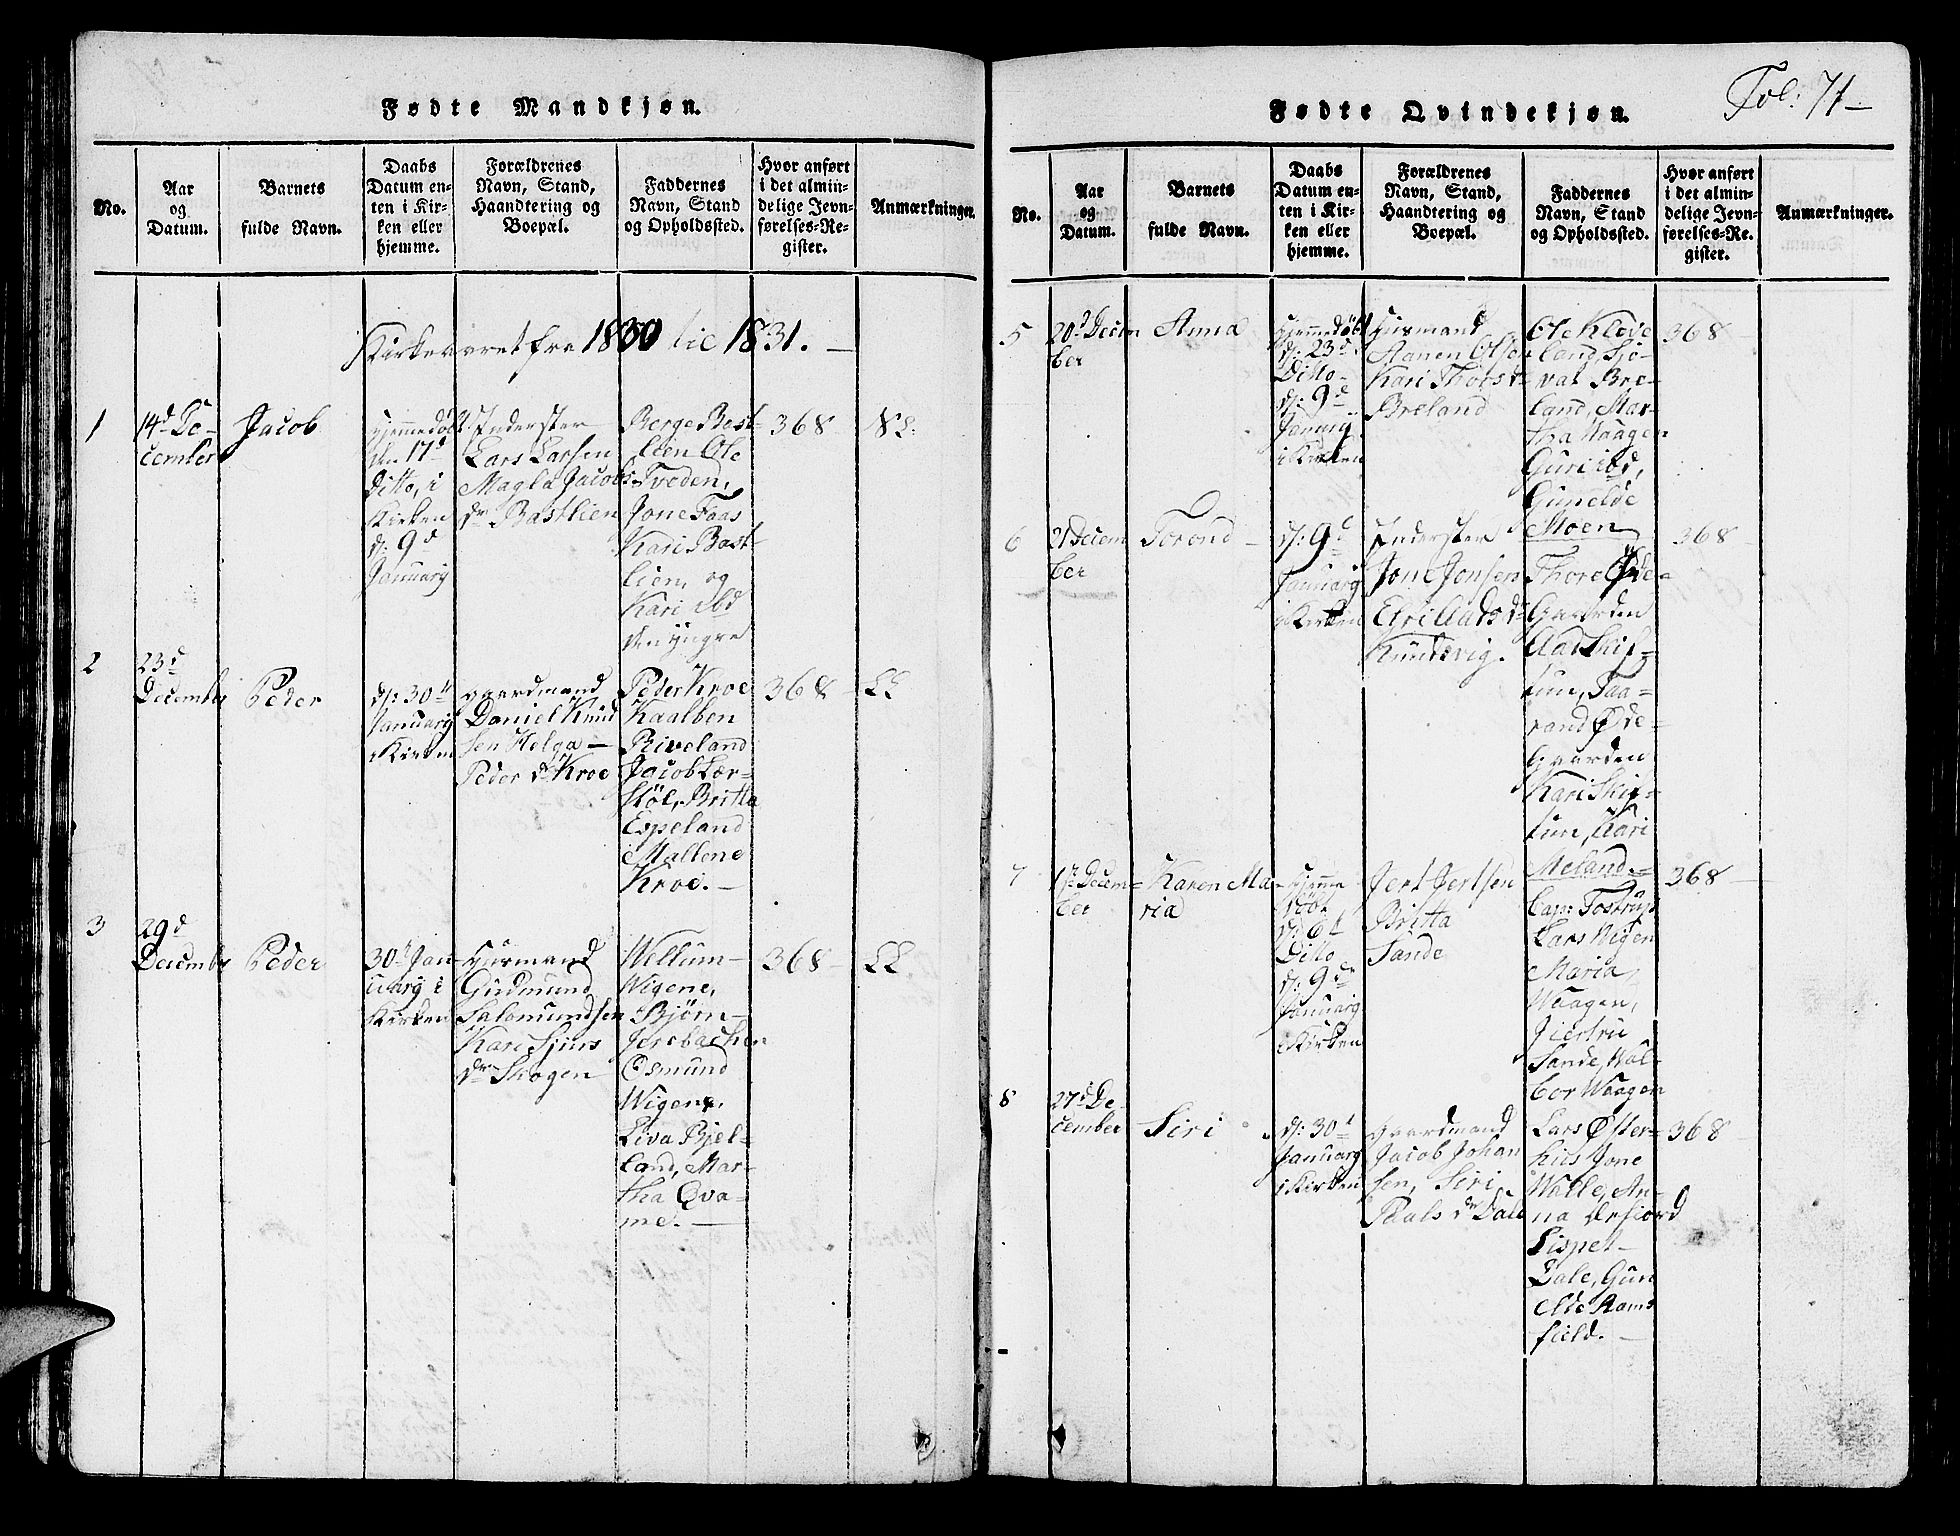 Fødte Mandkjøn.
No.
Aar
og
Datum.
Barnets
fulde Navn.
Daabs
Datum en-
ten i Kir-
ken eller
hjemme.
Forældrenes
Navn, Stand,
Haandtering og
Boepæl.
Faddernes
Navn, Stand
og Opholdssted.
Hvor anført
i det almin-
delige Jevn-
førelses-Re-
gister.
Anmærkninger.
Kirkeaaret fra 1830 til 1831. —
1
14d De-
cember
Jacob
Hjemmedöbt
den 17d
Ditto, i
Kirken
d: 9d
Januarij
Inderster
Lars Larsen
Magla Jacobs
dr Bastlien
Berge Bast-
lien Ole
Tveden,
Jone Faas
Kari Bast-
lien, og
Kari ibd
den yngre
368
2
23d
December
Peder
d: 30te
Januarij
i Kirken
gaardmand
Daniel Knud
sen Helga —
Peder dr Kroe
Peder Kroe
Kaalben
Riveland
Jacob Lær-
stöl, Britta
Espeland
Mallene
Kroe. —
368 —
3
29d
Decembr
Peder
30te Jan-
uarij i
Kirken
Huusmand
Gudmund
Salomundsen
Kari Sjurs
dr Skogen
Wellum —
Wigene,
Bjørn —
Jerebachen
Osmund
Wigene,
Liva Bjel-
land, Mar-
tha Qva-
me. —
368 —
Fol: 71 —
Fødte Qvindekjøn.
No.
Aar
og
Datum.
Barnets
fulde Navn.
Daabs
Datum en-
ten i Kir-
ken eller
hjemme.
Forældrenes
Navn, Stand,
Haandtering og
Boepæl.
Faddernes
Navn, Stand
og Opholdssted.
Hvor anført
i det almin-
delige Jevn-
førelses-Re-
gister.
Anmærkninger.
5
20d Decem
ber
Anna
Hjemmedöbt
d: 23d
Ditto —
d: 9de
Januarij
i Kirken
Huusmand
Aanen Olsen
Kari Thorsdr
Breland
Ole Kløve
land, Sjo-
vat Bre-
land, Mar-
tha Waagen
Guri ibd,
Gunelde
Moen
368
6
21 Decem
ber
Torond —
d: 9d
Januarij
i Kirken
Inderster
Jone Jonsen
Elsi Aads dr
Kundevig.
Thore Øde-
Gaarden
Aad Skif-
tun, Taa-
rand Øde-
gaarden
Kari Skif-
tun, Kari
Meland. —
368 —
7
1s Decem-
ber
Karen Ma-
ria
Hjemme
döbt
d: 6t
Ditto
d: 9de
Januarij
i Kirken
Jert Jertsen
Britta
Sande
Cap: Tostrup
Lars Wigen
Maria
Waagen,
Jiertru
Sande, Wol-
bor Waagen
368 —
8
27d De-
cember
Siri
d: 30t
Januarij
i Kirken
gaardmand
Jacob Johan
sen, Siri
Paals dr Dale
Lars Øster-
hus Jone
Walle, An-
na Arsiord
Lispet —
Dale, Gun
elde Rams
field. —
368 —